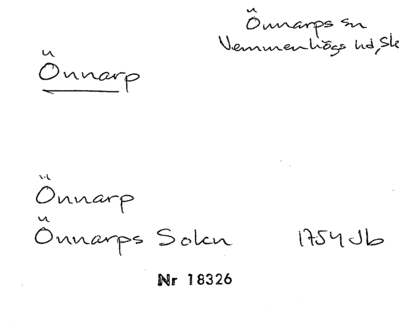 Önnarps sn
Vemmenhögs hd, Sk
Önnarp
Önnarp
Önnarps Sokn
1754 Jb
Nr 18326